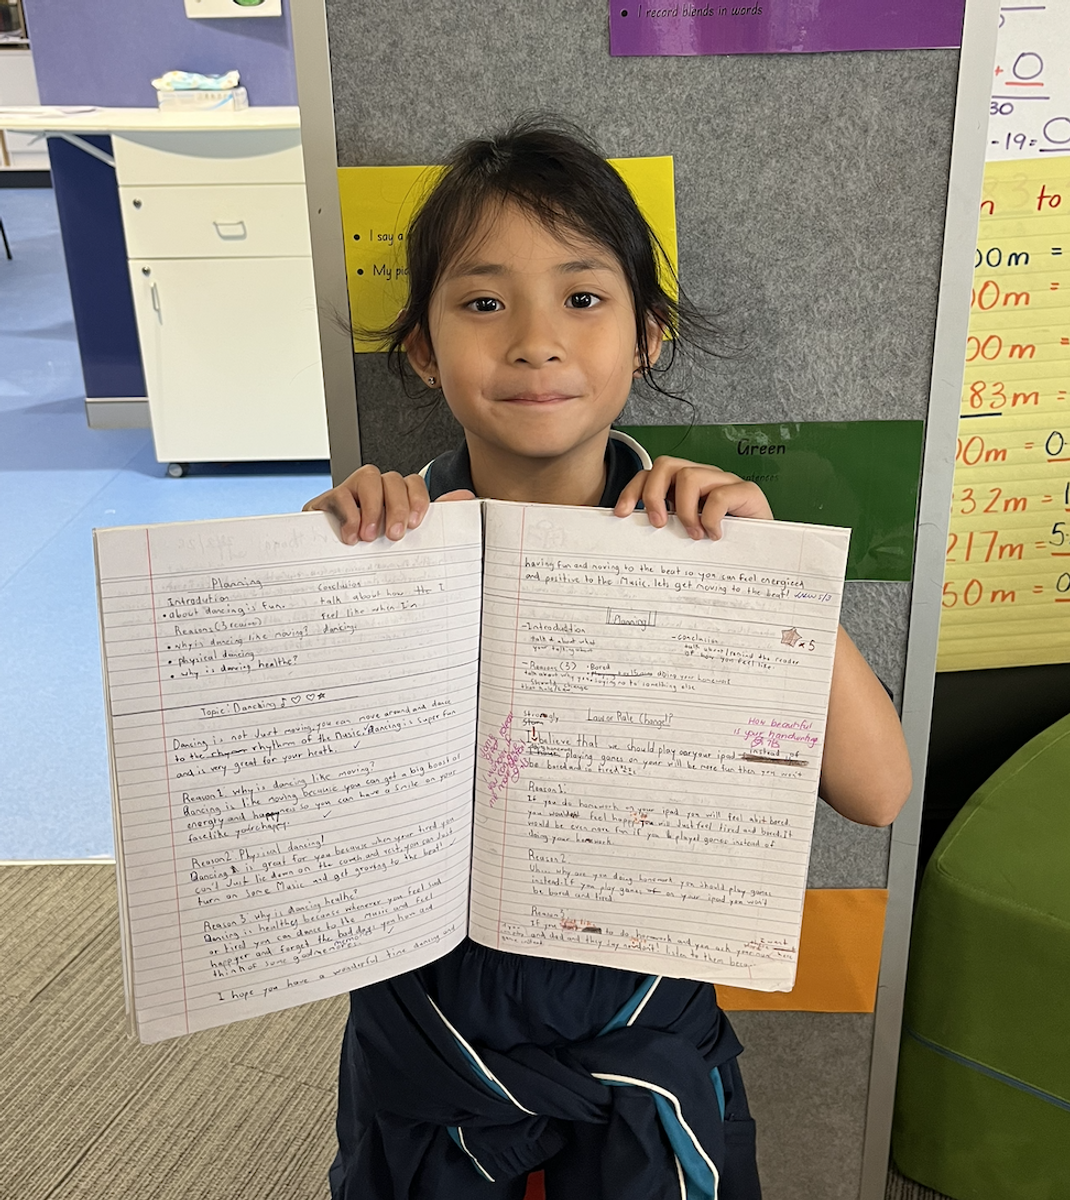 I record blends in words
I say a
My pic
Green
+ 0
30
-19=0
to
00m =
00m =
00m =
83m =
00m = 0
32m =
217m = 5
50m = 0
Planning
Introdution
about dancing is fun.
Reasons (3 reasion)
why is dancing like moving?
physical dancing
why is dancing healthe?
Conclusion
talk about how I
feel like when I'm
dancing.
Topic: Dancking
Dancing is not Just moving, you can move around and dance
to the rhythm of the Music. Dancing is super fun
and is very great for your heath.
Reason 1. why is dancing like moving?
Dancing is like moving because you can get a big boost of
energy and happyness so you can have a smile on your
face like you're happy.
Reason 2. Physical dancing!
Dancing is great for you because when your tired you
can't Just lie down on the couch and rest, you can Just
turn on some Music and get grooving to the beat!
Reason 3. why is dancing healthe?
Dancing is healthey because whenever you feel sad
or tired you can dance to the music and feel
happyer and forget the bad days you have and
think of some good memories.
I hope you have a wonderful time dancing and
having fun and moving to the beat so you can feel energized
and positive to the Music. lets get moving to the beat!
Planning
-Introduction
talk about what
your talking about
-conclusion
talk about/remind the reader
of how you feel like.
x 5
-Reasons (3)
talk about why you
should change
Bored
doing your homework
saying no to something else
Strongly
Law or Rule Change!?
How beautiful
is your handwriting
I believe that we should play on your ipad instead of
playing games on your will be more fun then you won't
be bored and is tired
Reason 1.
If you do homework your ipad you will feel abit bored
you wouldn't feel happy you will Just feel tired and bored. It
would be even more fun if you played games instead of
doing your homework.
Reason 2
Uh... why are you doing homework you should play games
instead. If you play games on your ipad you won't
be bored and tired
Reason 3
If you to do homework and you ask your mum
and dad and they say listen to them becau
game instead